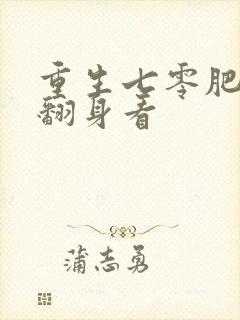 重生七零肥
翻身看
蒲志勇